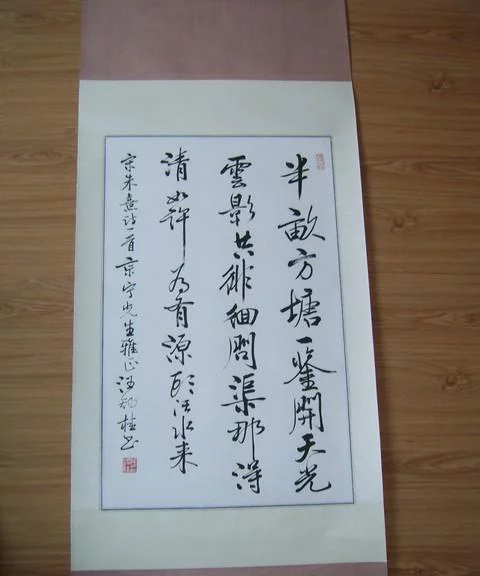 半畝方塘一鑒開天光
雲影共徘徊問渠那得
清如許為有源頭活水来
宋朱熹诗一首京宁先生雅正汪桂书